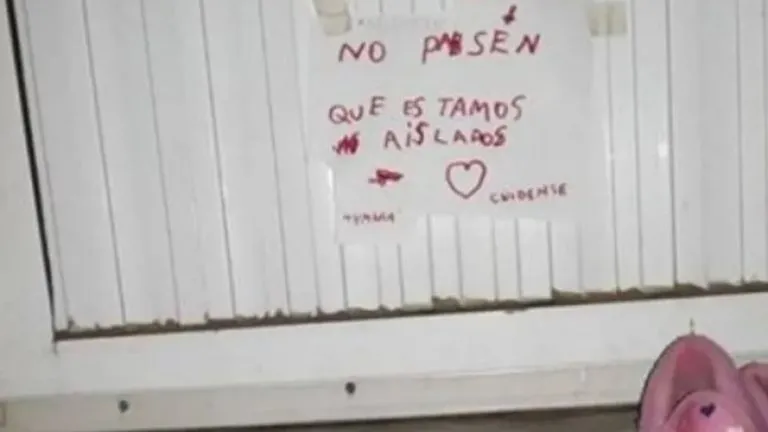 NO PASÉN
QUE ESTAMOS
AISLADOS
CUIDENSE